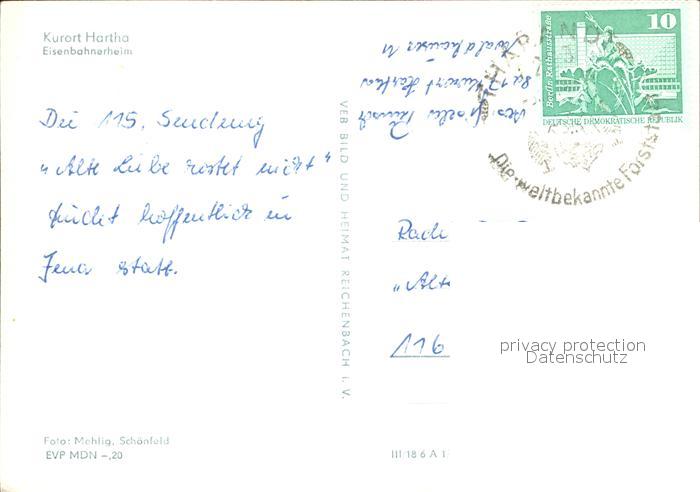 Kurort Hartha
Eisenbahnerheim
Die 115. Sendung
"Alte Liebe rostet nicht"
findet hoffentlich in
Jena statt.
Foto: Mehlig, Schönfeld
EVP MDN –,20
VEB BILD UND HEIMAT REICHENBACH i. V.
III/18 6 A 1
Kurort Hartha
10
Berlin, Rathausstraße
DEUTSCHE DEMOKRATISCHE REPUBLIK
THARANDT
Die weltbekannte Forststadt
Radi
"Alt
116
privacy protection
Datenschutz